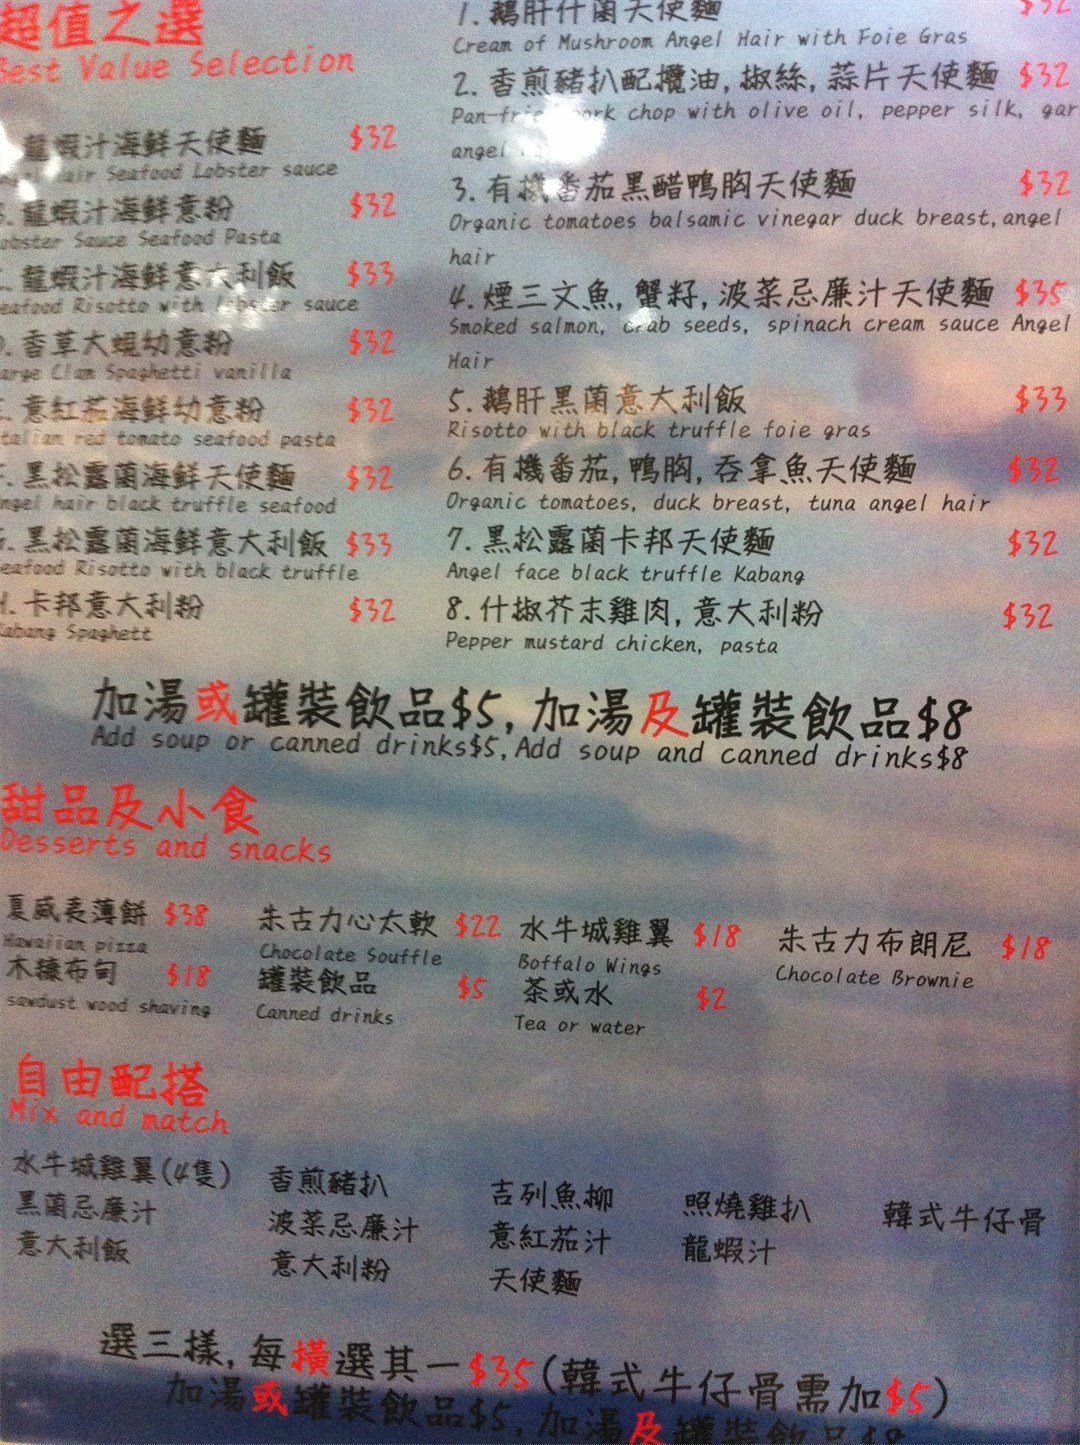 超值之選
Best Value Selection
龍蝦汁海鮮天使麵 $32
Hair Seafood Lobster sauce
龍蝦汁海鮮意粉 $32
Lobster Sauce Seafood Pasta
龍蝦汁海鮮意大利飯 $33
Seafood Risotto with lobster sauce
D.香草大蜆幼意粉 $32
Large Clam Spaghetti vanilla
E.意紅茄海鮮幼意粉 $32
Italian red tomato seafood pasta
F.黑松露菌海鮮天使麵 $32
Angel hair black truffle seafood
G.黑松露菌海鮮意大利飯 $33
Seafood Risotto with black truffle
H.卡邦意大利粉 $32
Kabang Spaghett
1.鵝肝什菌天使麵 $32
Cream of Mushroom Angel Hair with Foie Gras
2.香煎豬扒配欖油,椒絲,蒜片天使麵 $32
Pan-fried pork chop with olive oil, pepper silk, gar
angel
3.有機番茄黑醋鴨胸天使麵 $32
Organic tomatoes balsamic vinegar duck breast,angel
hair
4.煙三文魚,蟹籽,波菜忌廉汁天使麵 $35
Smoked salmon, crab seeds, spinach cream sauce Angel
Hair
5.鵝肝黑菌意大利飯 $33
Risotto with black truffle foie gras
6.有機番茄,鴨胸,吞拿魚天使麵 $32
Organic tomatoes, duck breast, tuna angel hair
7.黑松露菌卡邦天使麵 $32
Angel face black truffle Kabang
8.什椒芥末雞肉,意大利粉 $32
Pepper mustard chicken, pasta
加湯或罐裝飲品$5,加湯及罐裝飲品$8
Add soup or canned drinks$5,Add soup and canned drinks$8
甜品及小食
Desserts and snacks
夏威夷薄餅 $38
Hawaiian pizza
朱古力心太軟 $22
Chocolate Souffle
水牛城雞翼 $18
Boffalo Wings
朱古力布朗尼 $18
Chocolate Brownie
木糠布甸 $18
sawdust wood shaving
罐裝飲品 $5
Canned drinks
茶或水 $2
Tea or water
自由配搭
Mix and match
水牛城雞翼(4隻) 香煎豬扒 吉列魚柳 照燒雞扒 韓式牛仔骨
黑菌忌廉汁 波菜忌廉汁 意紅茄汁 龍蝦汁
意大利飯 意大利粉 天使麵
選三樣,每橫選其一$35(韓式牛仔骨需加$5)
加湯或罐裝飲品$5,加湯及罐裝飲品$8